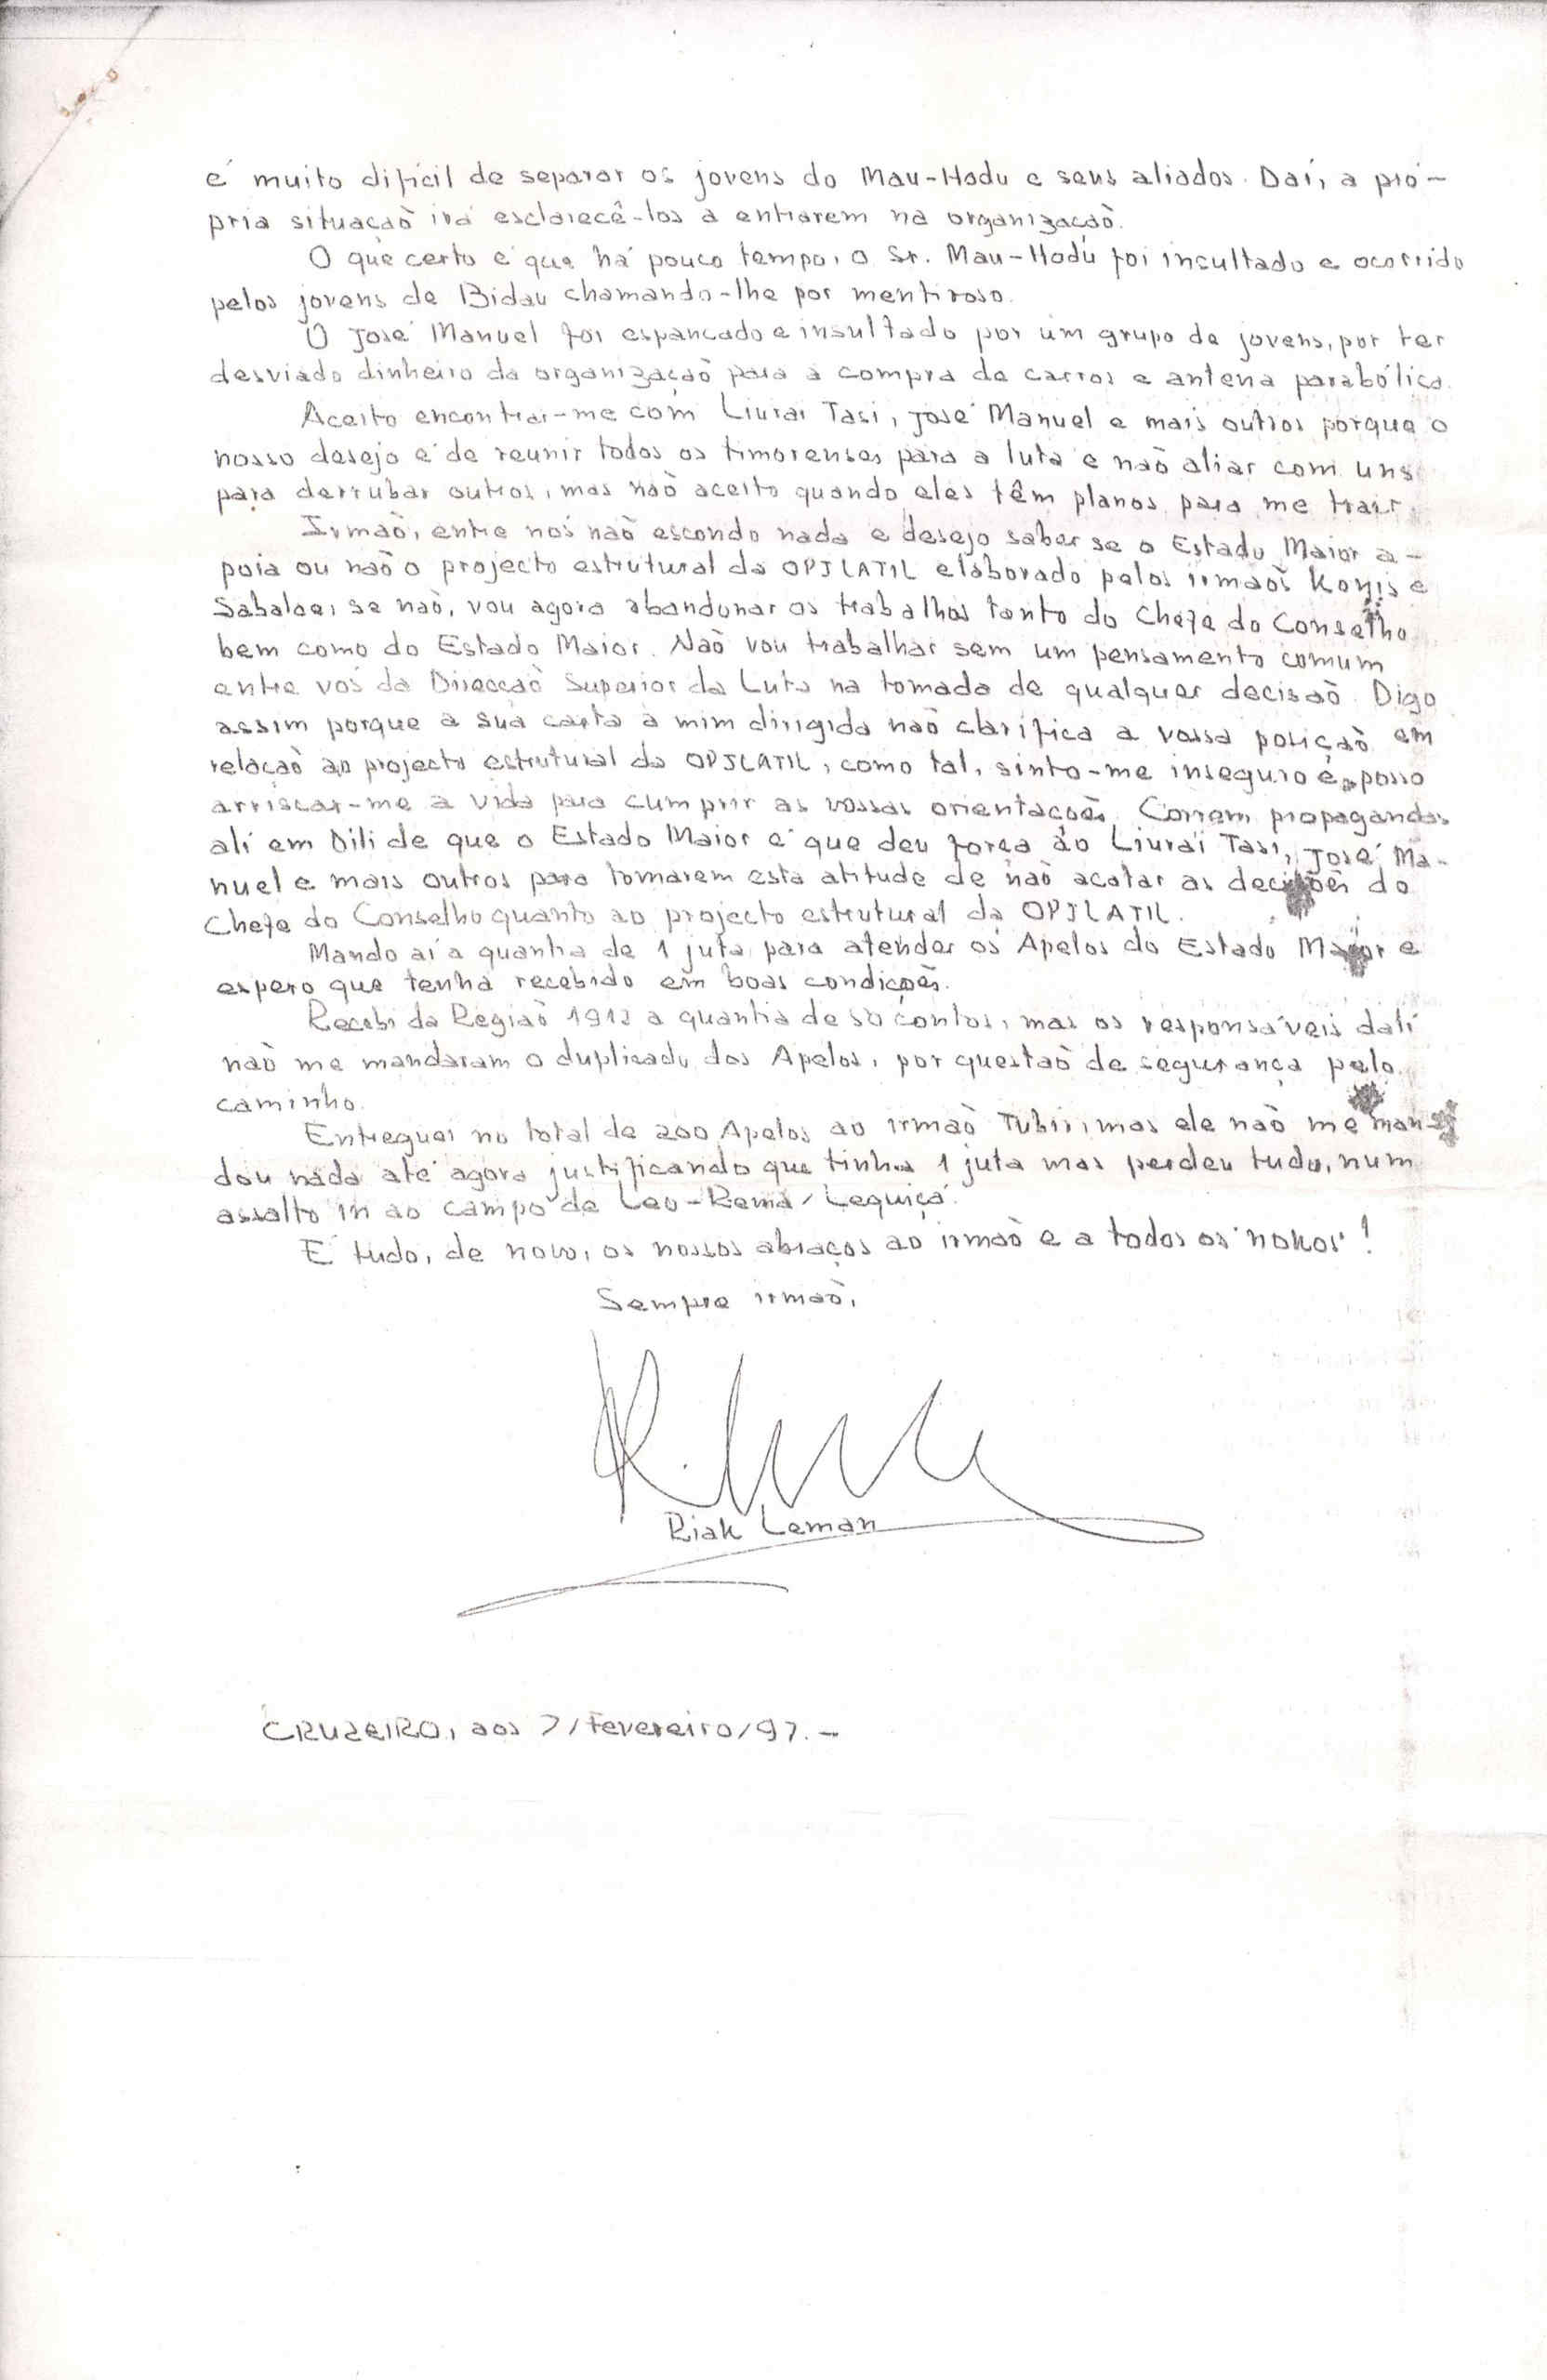 é muito difícil de separar os jovens do Mau-Hodu e seus aliados. Daí, a pró-
pria situação irá esclarecê-los a entrarem na organização.
O que certo é que há pouco tempo, o Sr. Mau-Hodu foi insultado e ocorrido
pelos jovens de Bidau chamando-lhe por mentiroso.
O José Manuel foi espancado e insultado por um grupo de jovens, por ter
desviado dinheiro da organização para a compra de carros e antena parabólica.
Aceito encontrar-me com Liurai Tasi, José Manuel e mais outros porque o
nosso desejo é de reunir todos os timorenses para a luta e não aliar com uns
para derrubar outros, mas não aceito quando eles têm planos para me trair.
Irmão, entre nós não escondo nada e desejo saber se o Estado Maior a-
poia ou não o projecto estrutural da OPJLATIL elaborado pelos irmãos Konis e
Sabalae, se não, vou agora abandonar os trabalhos tanto do Chefe do Conselho
bem como do Estado Maior. Não vou trabalhar sem um pensamento comum
entre vós da Direcção Superior da Luta na tomada de qualquer decisão. Digo
assim porque a sua carta a mim dirigida não clarifica a vossa posição em
relação ao projecto estrutural da OPJLATIL, como tal, sinto-me inseguro e posso
arriscar-me a vida para cumprir as vossas orientações. Correm propagandas
ali em Dili de que o Estado Maior é que deu força ao Liurai Tasi, José Ma-
nuel e mais outros para tomarem esta atitude de não acatar as decisões do
Chefe do Conselho quanto ao projecto estrutural da OPJLATIL.
Mando aí a quantia de 1 juta para atender os Apelos do Estado Maior e
espero que tenha recebido em boas condições.
Recebi da Região 1912 a quantia de 50 contos, mas os responsáveis dali
não me mandaram o duplicado dos Apelos, por questão de segurança pelo
caminho.
Entreguei no total de 200 Apelos ao irmão Tubir, mas ele não me man-
dou nada até agora justificando que tinha 1 juta mas perdeu tudo, num
assalto in ao campo de Leo-Rema/Lequiçá.
É tudo, de novo, os nossos abraços ao irmão e a todos os "nokos"!
Sempre irmão,
Riak Leman
CRUZEIRO, aos 7/fevereiro/97.-